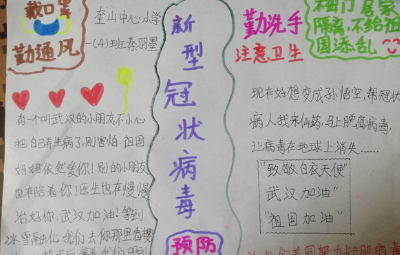 戴口罩
勤通风
奎山中心小学
一(4)班秦羽墨
有一个叫武汉的小朋友不小心
把自己弄生病了,别害怕 祖国
妈妈依然爱你!别的小朋友
也在陪着你!医生也在慢慢
治好你,武汉加油!等到
冰雪融化,我们去你那里看樱
新型冠状病毒
预防
勤洗手
注意卫生
相门 居家
隔离,不给祖
国添乱
现在好想变成孙悟空,帮冠状
病人找来仙药,马上脱离病毒,
让病毒在地球上消失……
"致敬白衣天使"
武汉加油"
"祖国加油"